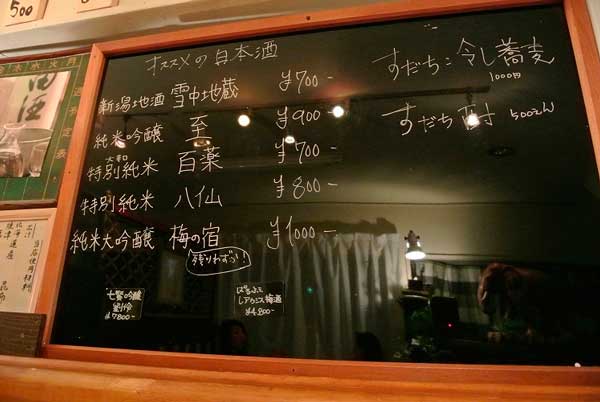 500
オススメの日本酒
新潟地酒 雪中地蔵 ¥700-
純米吟醸 至 ¥900-
特別純米 百薬 ¥700-
特別純米 八仙 ¥800-
純米大吟醸 梅の宿 ¥1000-
残りわずか!!
七賢吟醸
¥7800-
¥4.800-
すだち冷し蕎麦
1000円
すだち酎 500えん
当店使用材料
北海道産